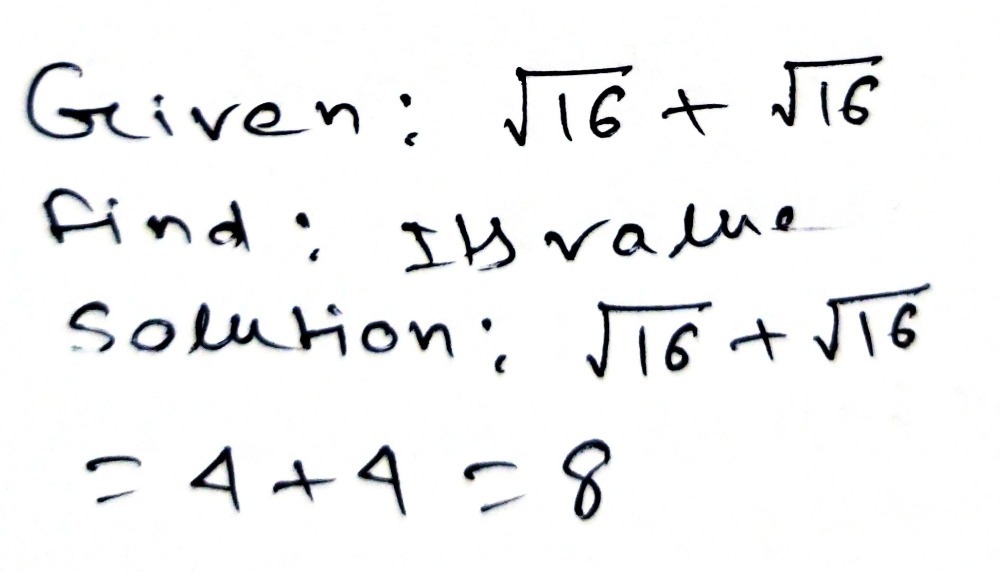 Given: √16 + √16
Find: Its value
Solution: √16 + √16
= 4 + 4 = 8